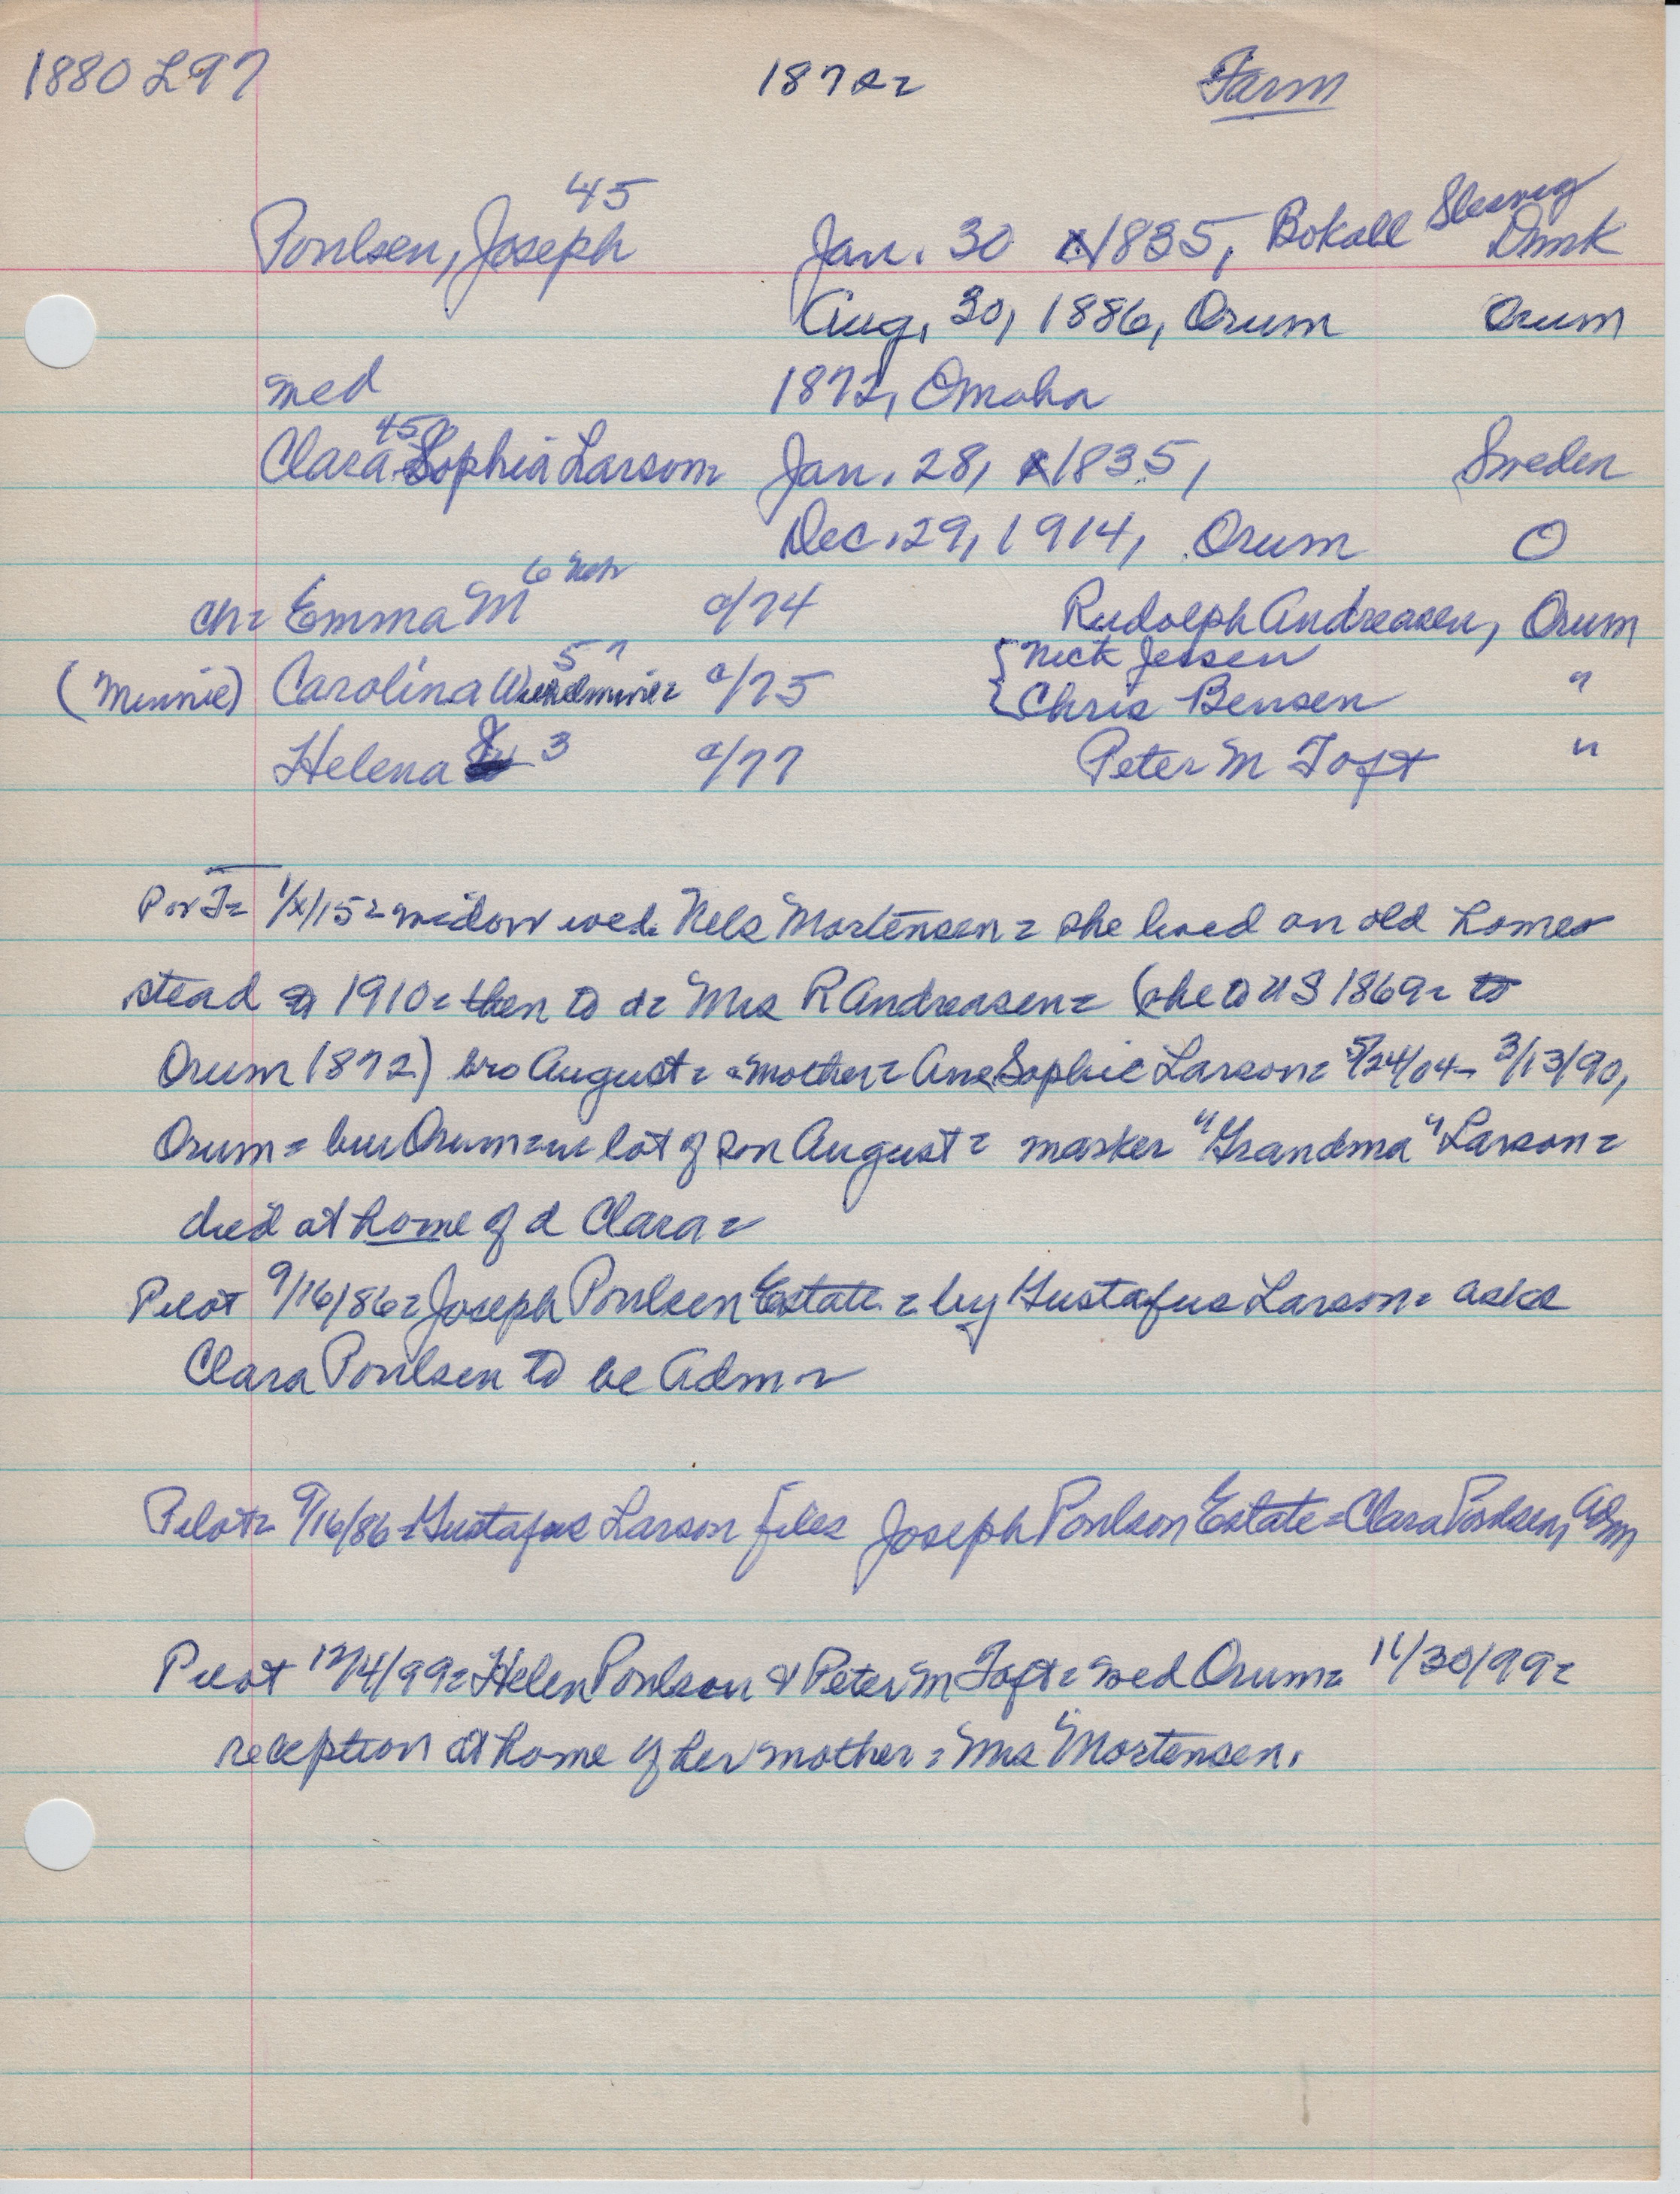 1880 L97 187 Farm
45
Poulsen, Joseph Jan. 30 1835, Bokall Slesvig Dmk
Aug. 30, 1886, Orum Orum
med 1872, Omaha
45
Clara Sophia Larson Jan. 28, 1835, Sweden
Dec. 29, 1914, Orum O
6 Neb
ch= Emma M c/74 Rudolph Andreasen, Orum
5 " { Nick Jessen
(Minnie) Carolina c/75 { Chris Bensen "
Helena 3 c/77 Peter M Toft "
P or T= 1/ /15= widow wed. Nels Mortensen= she lived on old home
stead 1910= then to d= Mrs R Andreasen= (she to US 1869= to
Orum 1872) bro August= mother= Ane Sophie Larson= 5/24/04- 3/13/90,
Orum= bur Orum= in lot of son August= marker "Grandma" Larson=
died at home of d Clara=
Pilot 9/16/86= Joseph Poulsen Estate= by Gustafus Larson= asks
Clara Poulsen to be Adm=
Pilot= 9/16/86= Gustafus Larson files Joseph Poulson Estate= Clara Poulsen, Adm
Pilot 12/14/99= Helen Poulson & Peter M Toft= wed Orum= 11/30/99=
reception at home of her mother= Mrs Mortensen.